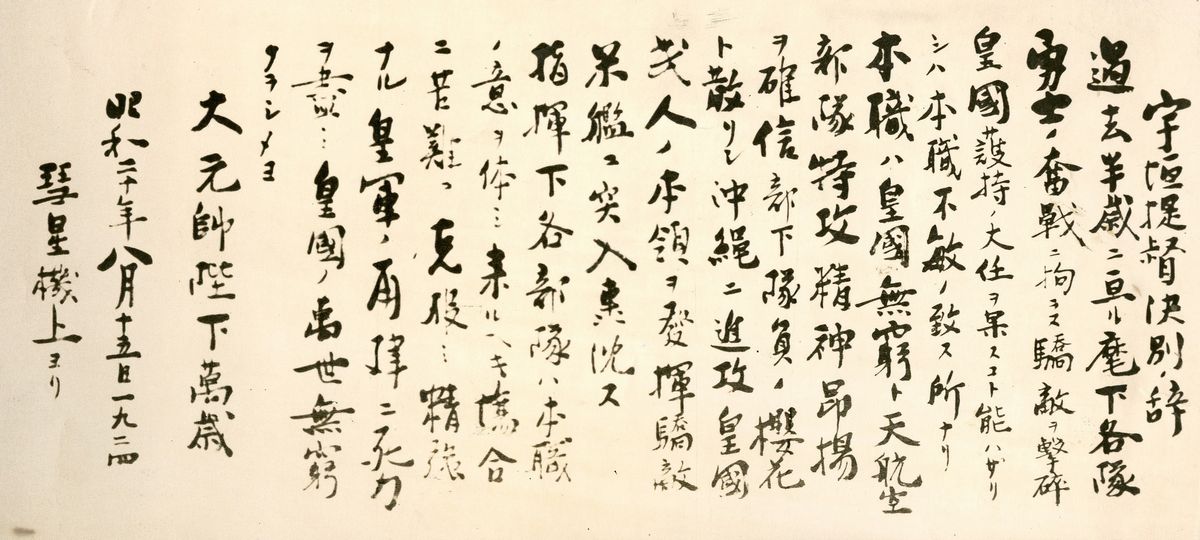 宇垣提督決別ノ辞
過去半歳ニ亘ル麾下各隊
勇士ノ奮戦ニ拘ラズ驕敵ヲ撃碎
皇國護持ノ大任ヲ果スコト能ハザリ
シハ本職不敏ノ致ス所ナリ
本職ハ皇國無窮ト天航空
部隊特攻精神昂揚
ヲ確信部下隊員ノ櫻花
ト散リシ沖縄ニ進攻皇國
武人ノ本領ヲ發揮驕敵
米艦ニ突入轟沈ス
指揮下各部隊ハ本職
ノ意ヲ体ミ来ルヘキ場合
ニ苦難ヲ克服シ精強
ナル皇軍ノ再建ニ死力
ヲ盡シ皇國ノ萬世無窮
ナラシメヨ
大元帥陛下萬歳
昭和二十年八月十五日一九二四
彗星機上ヨリ